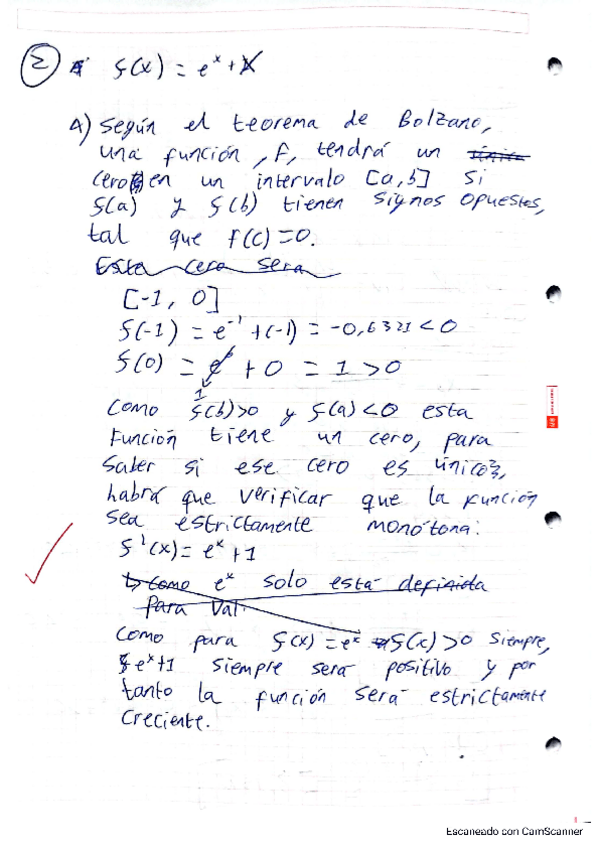 2 f(x) = e^x + x
A) Según el teorema de Bolzano,
una función, f, tendrá un
cero en un intervalo [a,b] si
f(a) y f(b) tienen signos opuestos,
tal que f(c)=0.
Esta cero sera
[-1, 0]
f(-1) = e^-1 +(-1) = -0,6321 < 0
f(0) = e^0 + 0 = 1 > 0
1
Como f(b)>0 y f(a)<0 esta
función tiene un cero, para
saber si ese cero es único,
habrá que verificar que la función
sea estrictamente monótona:
f'(x) = e^x + 1
↳ como e^x solo está definida
para val.
Como para f(x) = e^x f(x) > 0 siempre,
e^x+1 siempre será positivo y por
tanto la función será estrictamente
creciente.
Escaneado con CamScanner